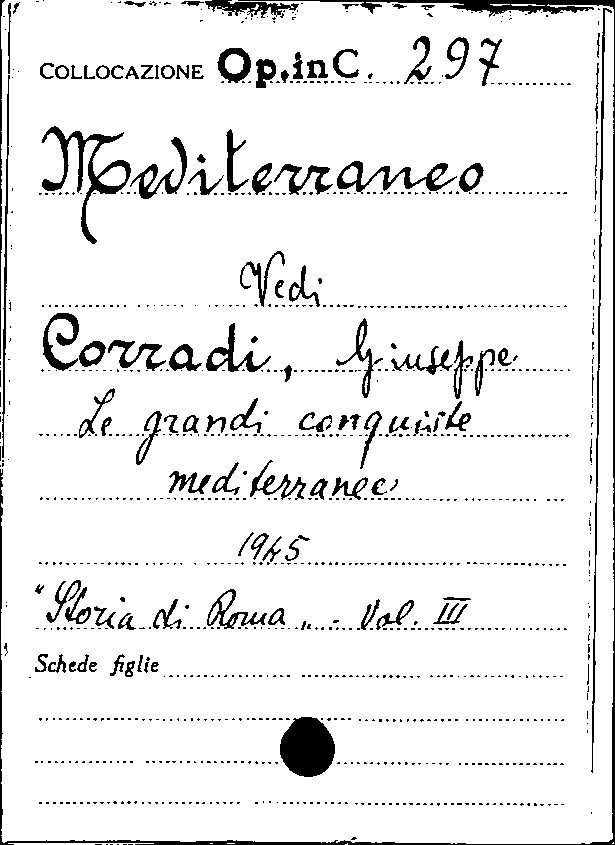 COLLOCAZIONE Op. in C. 297
Mediterraneo
Vedi
Corradi, Giuseppe
Le grandi conquiste
mediterranee
1945
"Storia di Roma" - Vol. III
Schede figlie